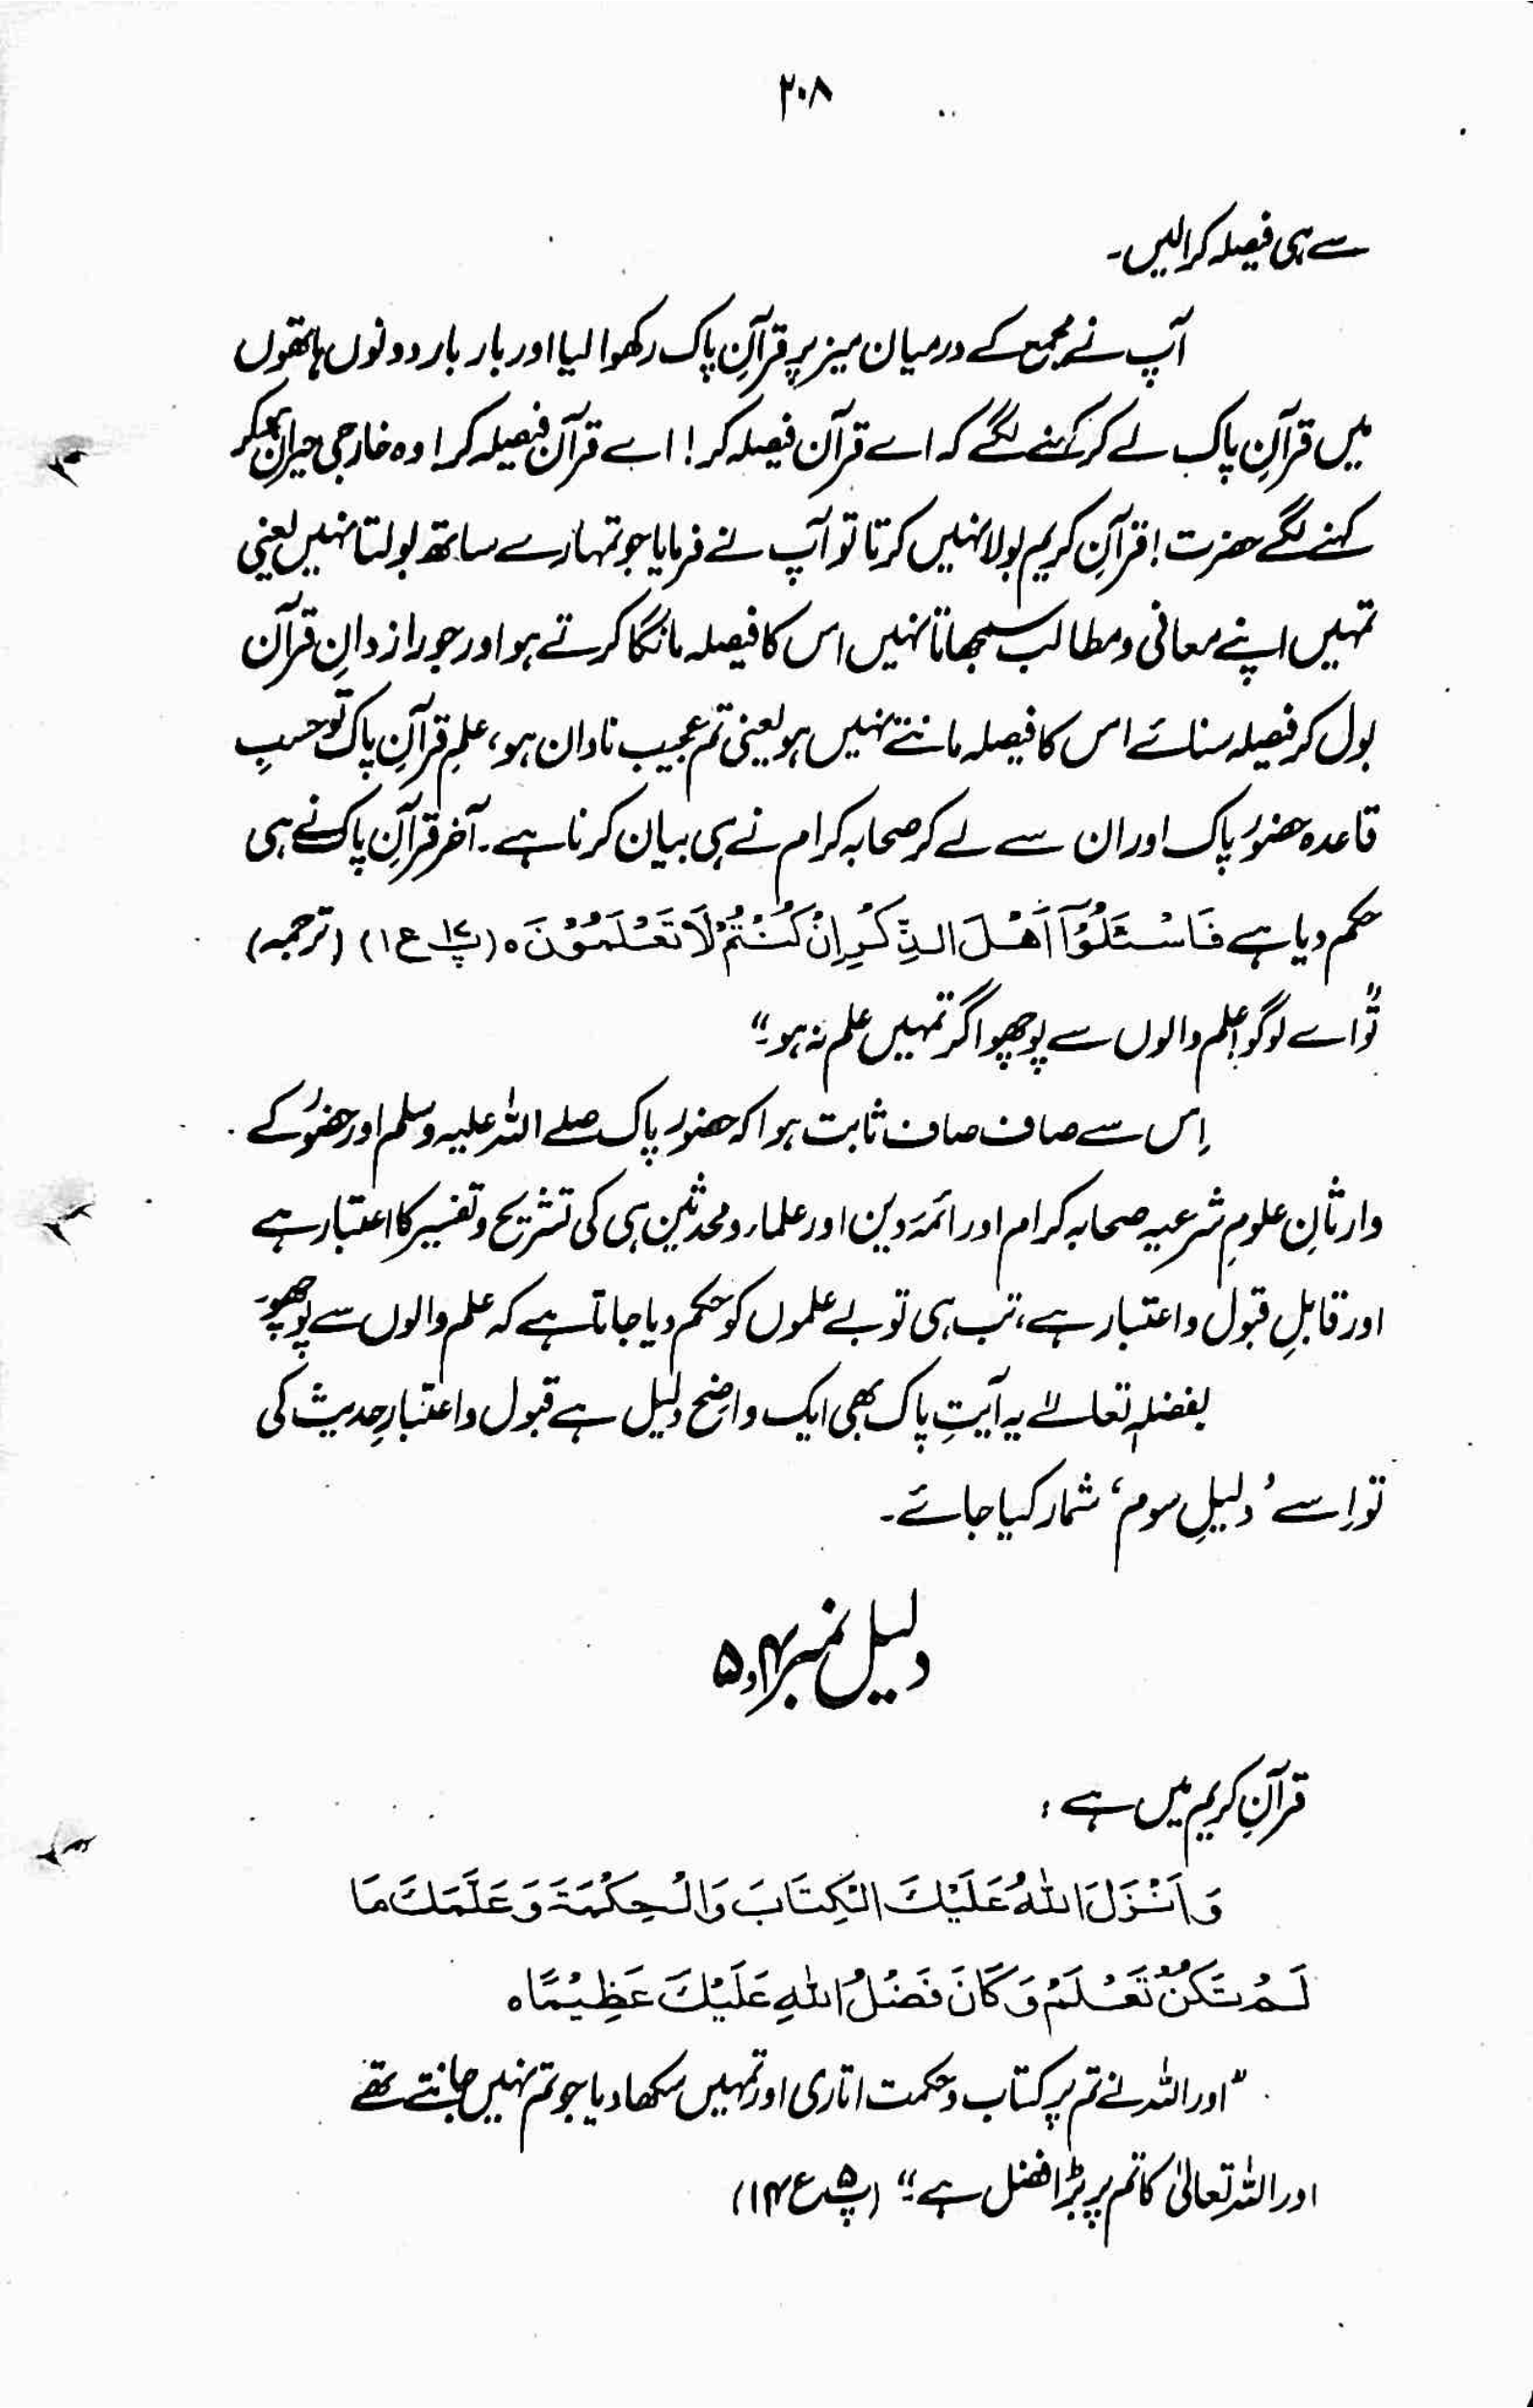 ۲۰۸
سے ہی فیصلہ کرالیں۔
آپ نے مجمع کے درمیان میز پر قرآنِ پاک رکھوا لیا اور بار بار دونوں ہاتھوں
میں قرآنِ پاک لے کر کہنے لگے کہ اے قرآن فیصلہ کر! اے قرآن فیصلہ کر! وہ خارجی حیران ہوکر
کہنے لگے حضرت! قرآنِ کریم بولا نہیں کرتا تو آپ نے فرمایا جو تمہارے ساتھ بولتا نہیں یعنی
تمہیں اپنے معانی و مطالب سمجھاتا نہیں اس کا فیصلہ مانگا کرتے ہو اور جو رازدانِ قرآن
بول کر فیصلہ سنائے اس کا فیصلہ مانتے نہیں ہو یعنی تم عجیب نادان ہو، علمِ قرآنِ پاک تو حسبِ
قاعدہ حضورؐ پاک اور ان سے لے کر صحابہ کرام نے ہی بیان کرنا ہے۔ آخر قرآنِ پاک نے ہی
حکم دیا ہے فَاسْئَلُوْٓا اَهْلَ الذِّكْرِ اِنْ كُنْتُمْ لَا تَعْلَمُوْنَ ہ (پ۱۷ ع۱) (ترجمہ)
”تو اے لوگو! علم والوں سے پوچھو اگر تمہیں علم نہ ہو۔“
اِس سے صاف صاف ثابت ہوا کہ حضور پاک صلے اللہ علیہ وسلم اور حضورؐ کے
وارثانِ علومِ شرعیہ صحابہ کرام اور ائمۂ دین اور علماء و محدثین ہی کی تشریح و تفسیر کا اعتبار ہے
اور قابلِ قبول و اعتبار ہے، تب ہی تو بے علموں کو حکم دیا جاتا ہے کہ علم والوں سے پوچھو۔
بفضلہٖ تعالےٰ یہ آیتِ پاک بھی ایک واضح دلیل ہے قبول و اعتبارِ حدیث کی
تو اِسے ’دلیلِ سوم‘ شمار کیا جائے۔
دلیل نمبر ۴ و ۵
قرآنِ کریم میں ہے :
وَاَنْزَلَ اللّٰهُ عَلَيْكَ الْكِتَابَ وَالْحِكْمَةَ وَعَلَّمَكَ مَا
لَمْ تَكُنْ تَعْلَمُ وَكَانَ فَضْلُ اللّٰهِ عَلَيْكَ عَظِيْمًا ہ
”اور اللہ نے تم پر کتاب و حکمت اتاری اور تمہیں سکھا دیا جو تم نہیں جانتے تھے
اور اللہ تعالیٰ کا تم پر بڑا فضل ہے۔“ (پ۵ ع۱۴)